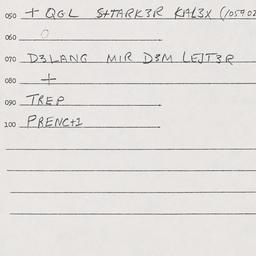 050 + QGL S+TARK3R KAL3X (105902
060 O
070 D3LANG MIR D3M LEJT3R
080 +
090 TREP
100 PRENC+1